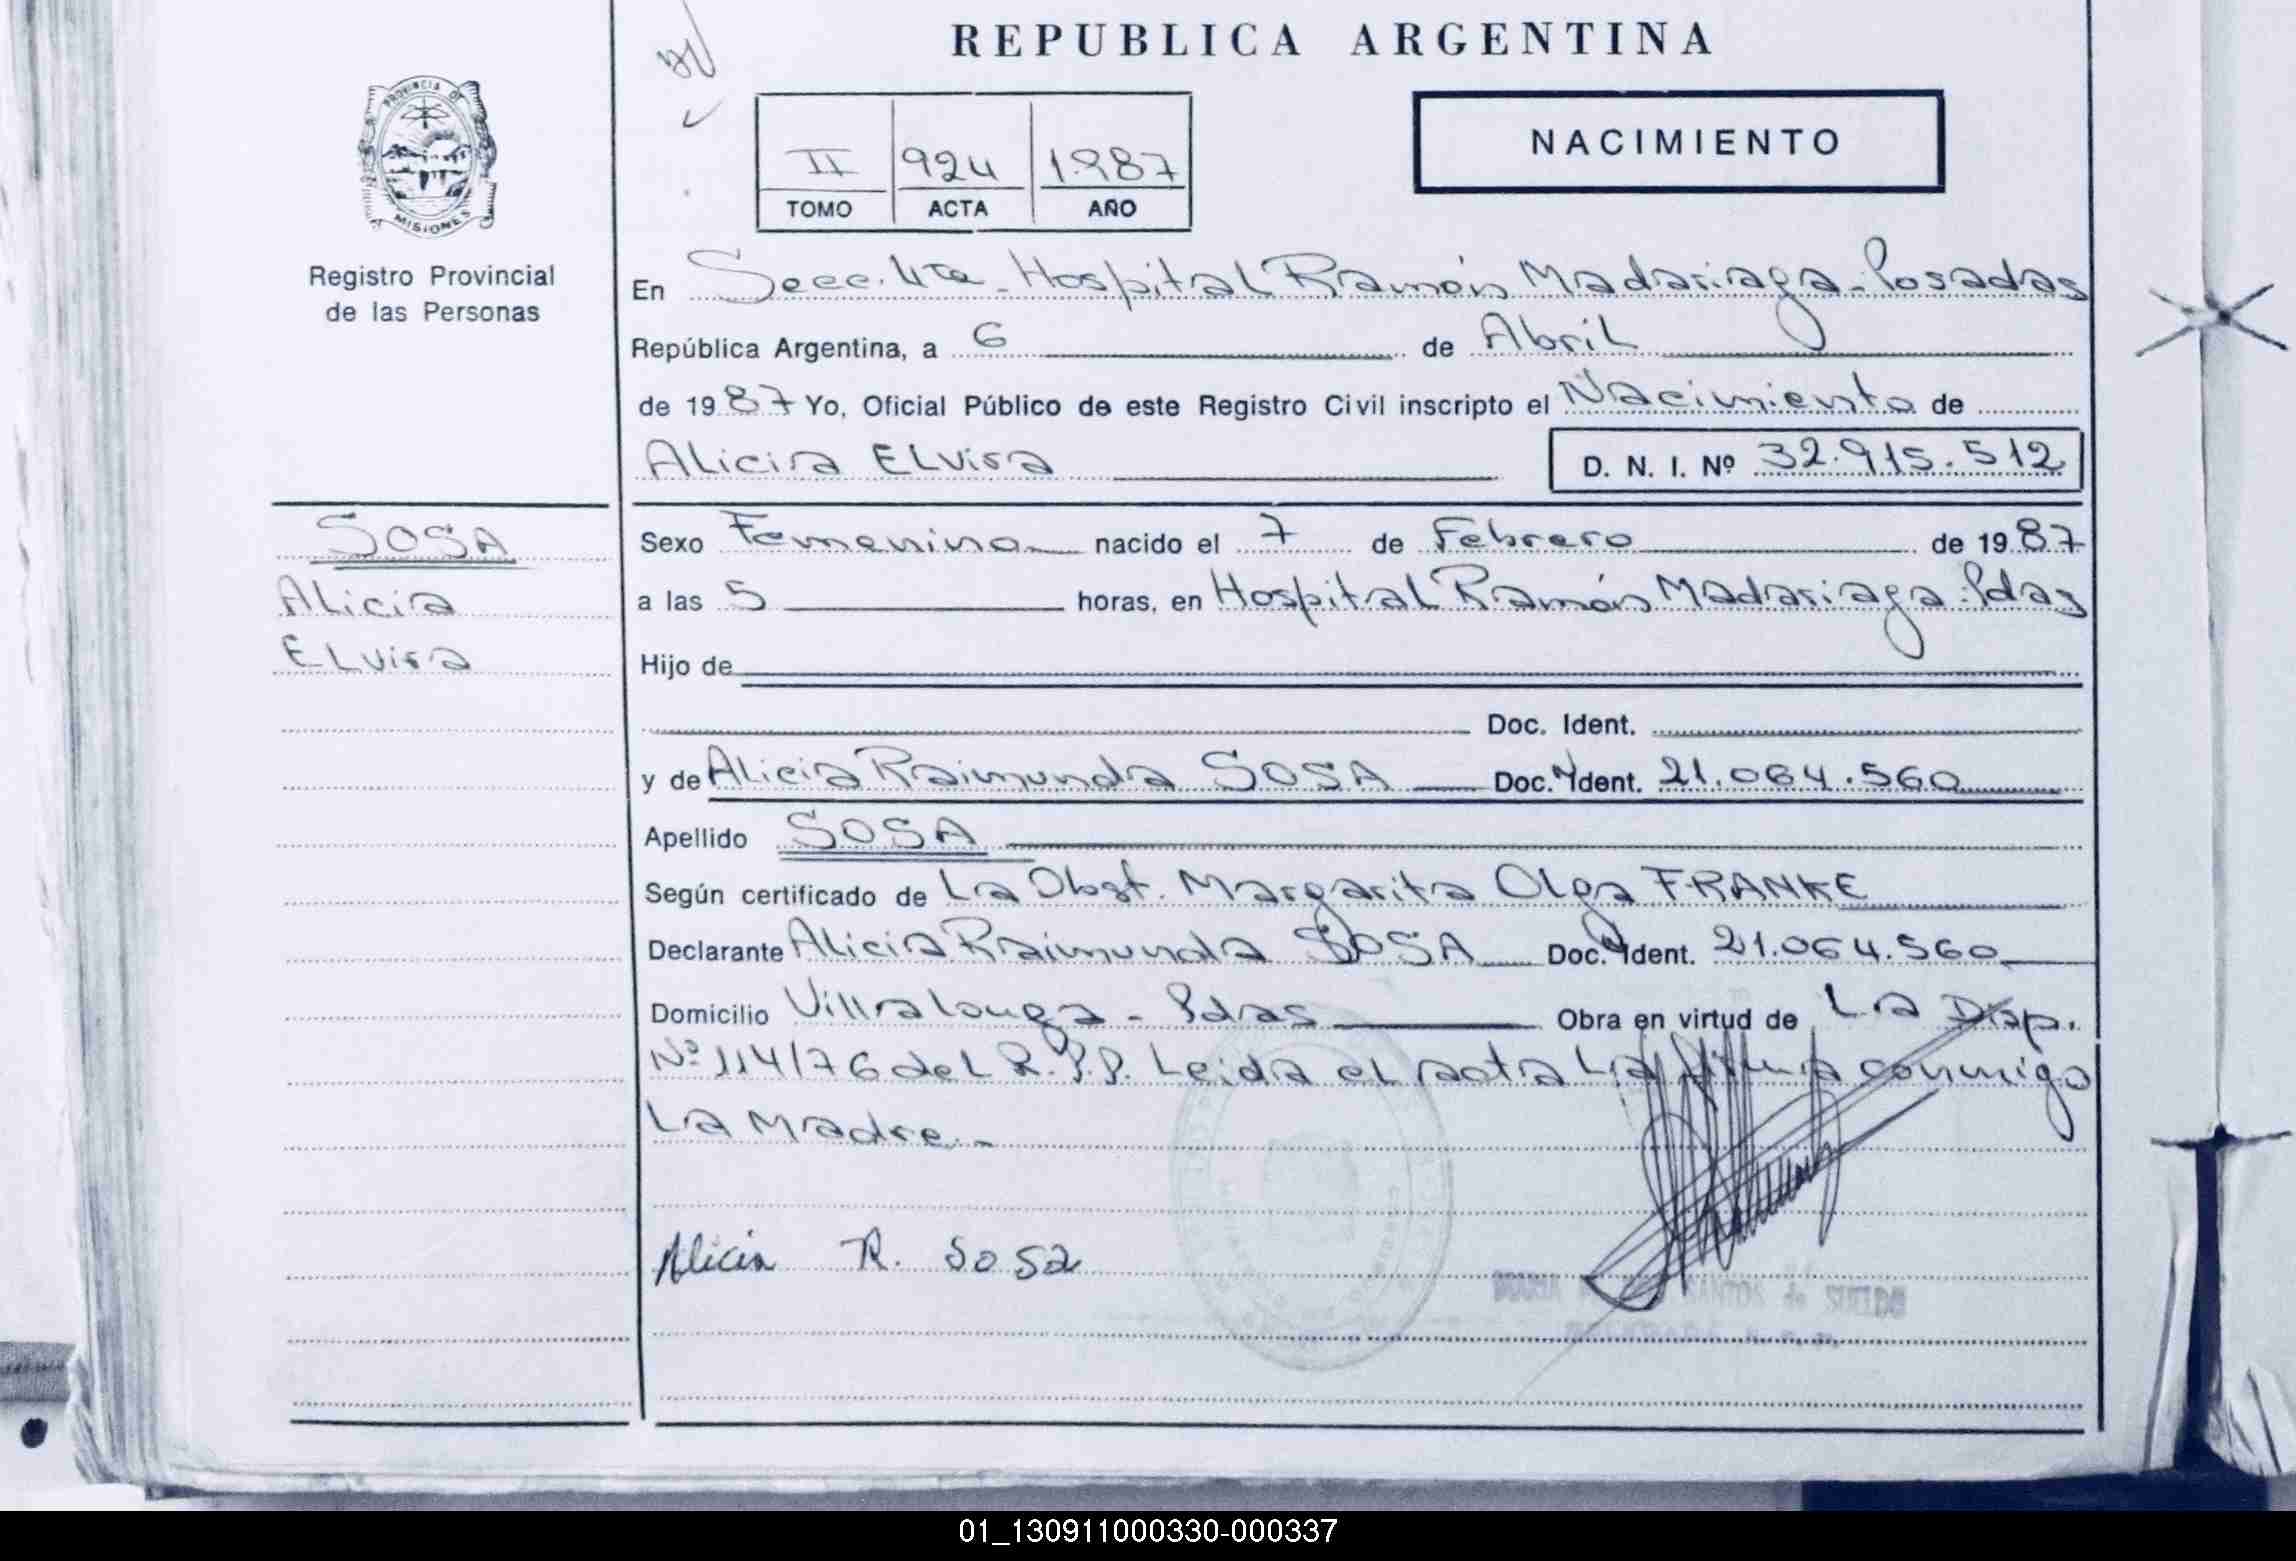 REPUBLICA ARGENTINA
PROVINCIA DE
MISIONES
Registro Provincial
de las Personas
II 924 1987
TOMO ACTA AÑO
NACIMIENTO
En Secc. 4ta - Hospital Ramón Madariaga - Posadas
República Argentina, a 6 de Abril
de 1987 Yo, Oficial Público de este Registro Civil inscripto el Nacimiento de
Alicia Elvira D. N. I. Nº 32.915.512
SOSA
Alicia
Elvira
Sexo Femenino nacido el 7 de Febrero de 1987
a las 5 horas, en Hospital Ramón Madariaga - Pdas
Hijo de
Doc. Ident.
y de Alicia Raimunda SOSA Doc. Ident. 21.064.560
Apellido SOSA
Según certificado de La Obst. Margarita Olga FRANKE
Declarante Alicia Raimunda SOSA Doc. Ident. 21.064.560
Domicilio Villalonga - Pdas Obra en virtud de La Disp.
Nº 114/76 del R.P.P. Leida el acta La firma conmigo
La Madre.-
Alicia R. Sosa
01_130911000330-000337